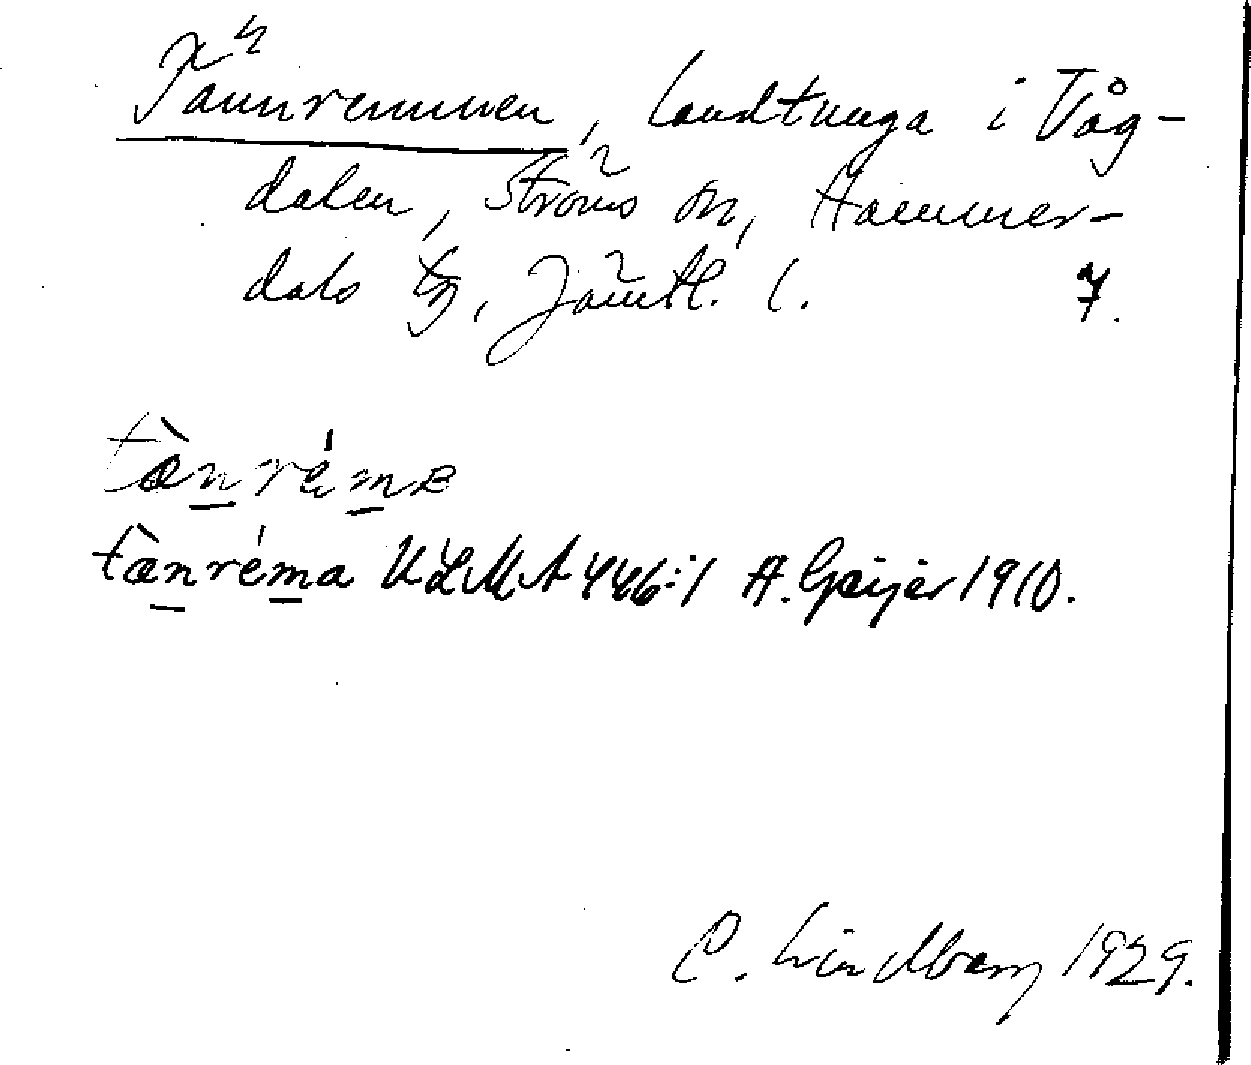 Tännremmen, landtunga i Våg-
dalen, Ströms sn, Hammer-
dals tg, Jämtl. l. 7.
tæ̀nrém
tæ̀nréma ULMA 446:1 A. Geijer 1910.
C. Lindberg 1929.